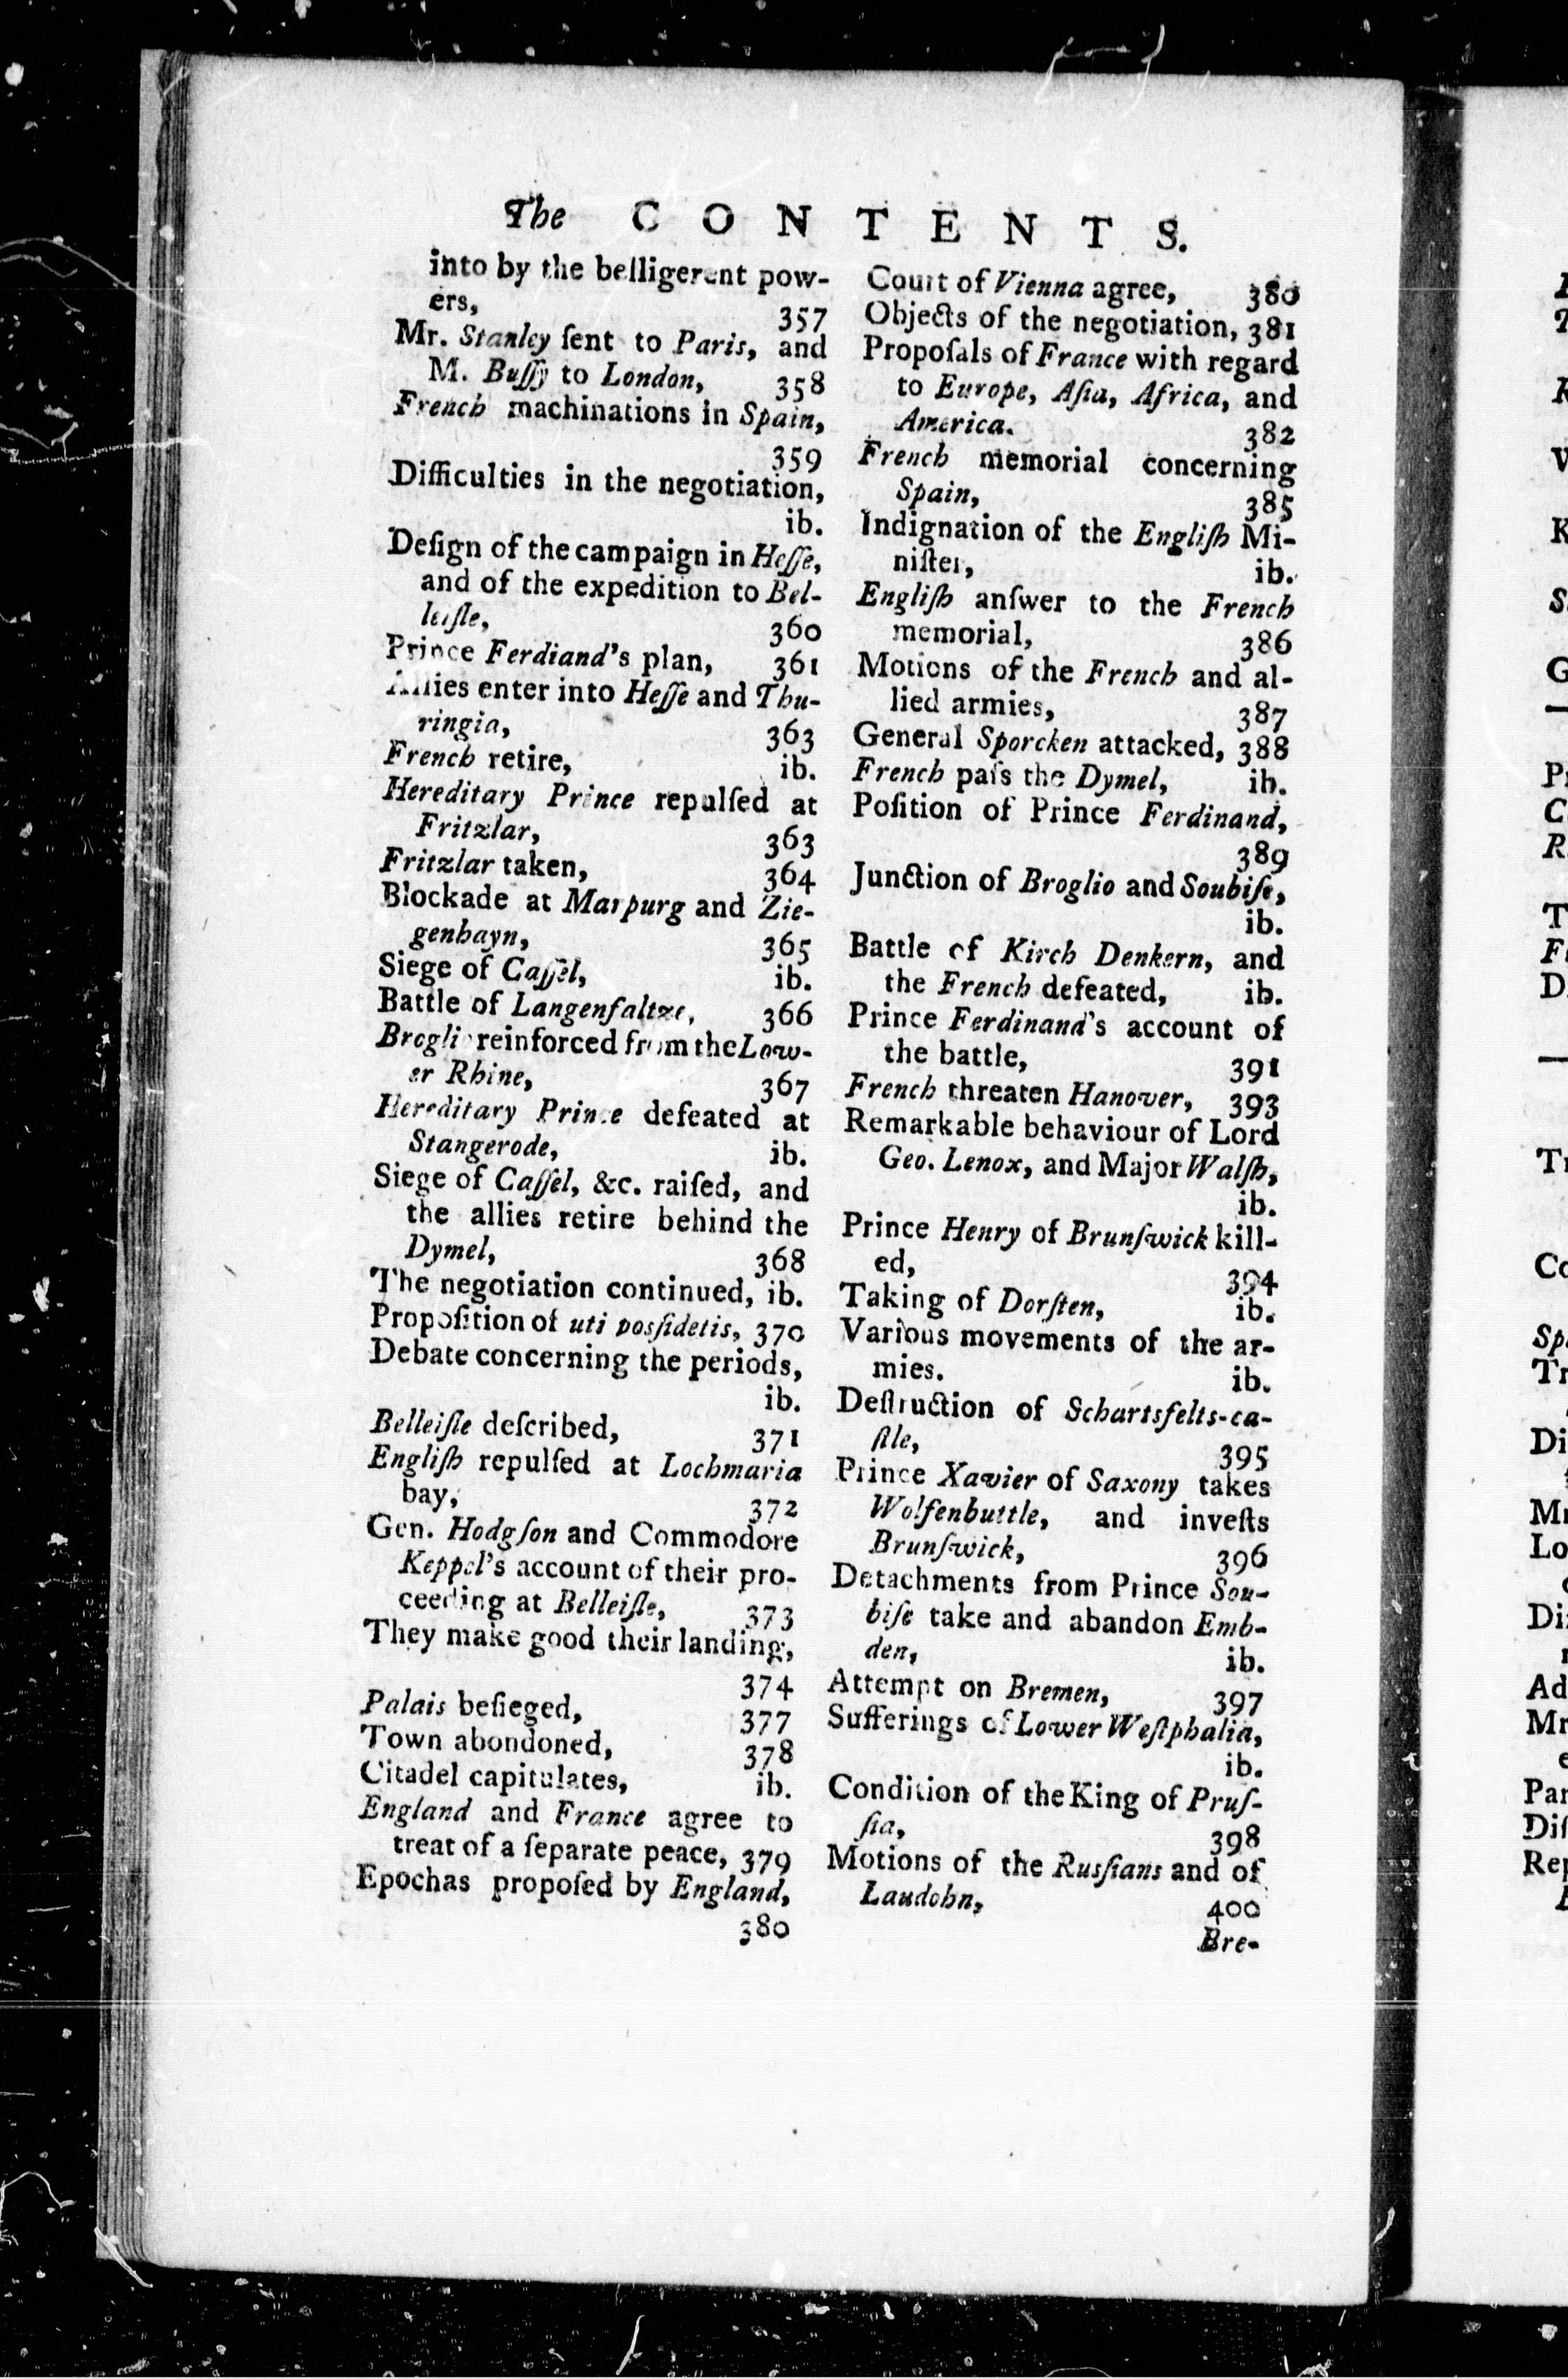 The CONTENTS.
into by the belligerent pow-
ers, 357
Mr. Stanley ſent to Paris, and
M. Buſſy to London, 358
French machinations in Spain,
359
Difficulties in the negotiation,
ib.
Deſign of the campaign in Heſſe,
and of the expedition to Bel-
leiſle, 360
Prince Ferdiand's plan, 361
Allies enter into Heſſe and Thu-
ringia, 363
French retire, ib.
Hereditary Prince repulſed at
Fritzlar, 363
Fritzlar taken, 364
Blockade at Marpurg and Zie-
genhayn, 365
Siege of Caſſel, ib.
Battle of Langenſaltze, 366
Broglio reinforced from the Low-
er Rhine, 367
Hereditary Prince defeated at
Stangerode, ib.
Siege of Caſſel, &c. raiſed, and
the allies retire behind the
Dymel, 368
The negotiation continued, ib.
Propoſition of uti posſidetis, 370
Debate concerning the periods,
ib.
Belleiſle deſcribed, 371
Engliſh repulſed at Lochmaria
bay, 372
Gen. Hodgſon and Commodore
Keppel's account of their pro-
ceeding at Belleiſle, 373
They make good their landing,
374
Palais beſieged, 377
Town abondoned, 378
Citadel capitulates, ib.
England and France agree to
treat of a ſeparate peace, 379
Epochas propoſed by England,
380
Court of Vienna agree, 380
Objects of the negotiation, 381
Propoſals of France with regard
to Europe, Aſia, Africa, and
America. 382
French memorial concerning
Spain, 385
Indignation of the Engliſh Mi-
niſter, ib.
Engliſh anſwer to the French
memorial, 386
Motions of the French and al-
lied armies, 387
General Sporcken attacked, 388
French paſs the Dymel, ib.
Poſition of Prince Ferdinand,
389
Junction of Broglio and Soubiſe,
ib.
Battle of Kirch Denkern, and
the French defeated, ib.
Prince Ferdinand's account of
the battle, 391
French threaten Hanover, 393
Remarkable behaviour of Lord
Geo. Lenox, and Major Walſh,
ib.
Prince Henry of Brunſwick kill-
ed, 394
Taking of Dorſten, ib.
Various movements of the ar-
mies. ib.
Deſtruction of Schartsfelts-ca-
ſtle, 395
Prince Xavier of Saxony takes
Wolfenbuttle, and inveſts
Brunſwick, 396
Detachments from Prince Sou-
biſe take and abandon Emb-
den, ib.
Attempt on Bremen, 397
Sufferings of Lower Weſtphalia,
ib.
Condition of the King of Pruſ-
ſia, 398
Motions of the Rusſians and of
Laudohn, 400
Bre-